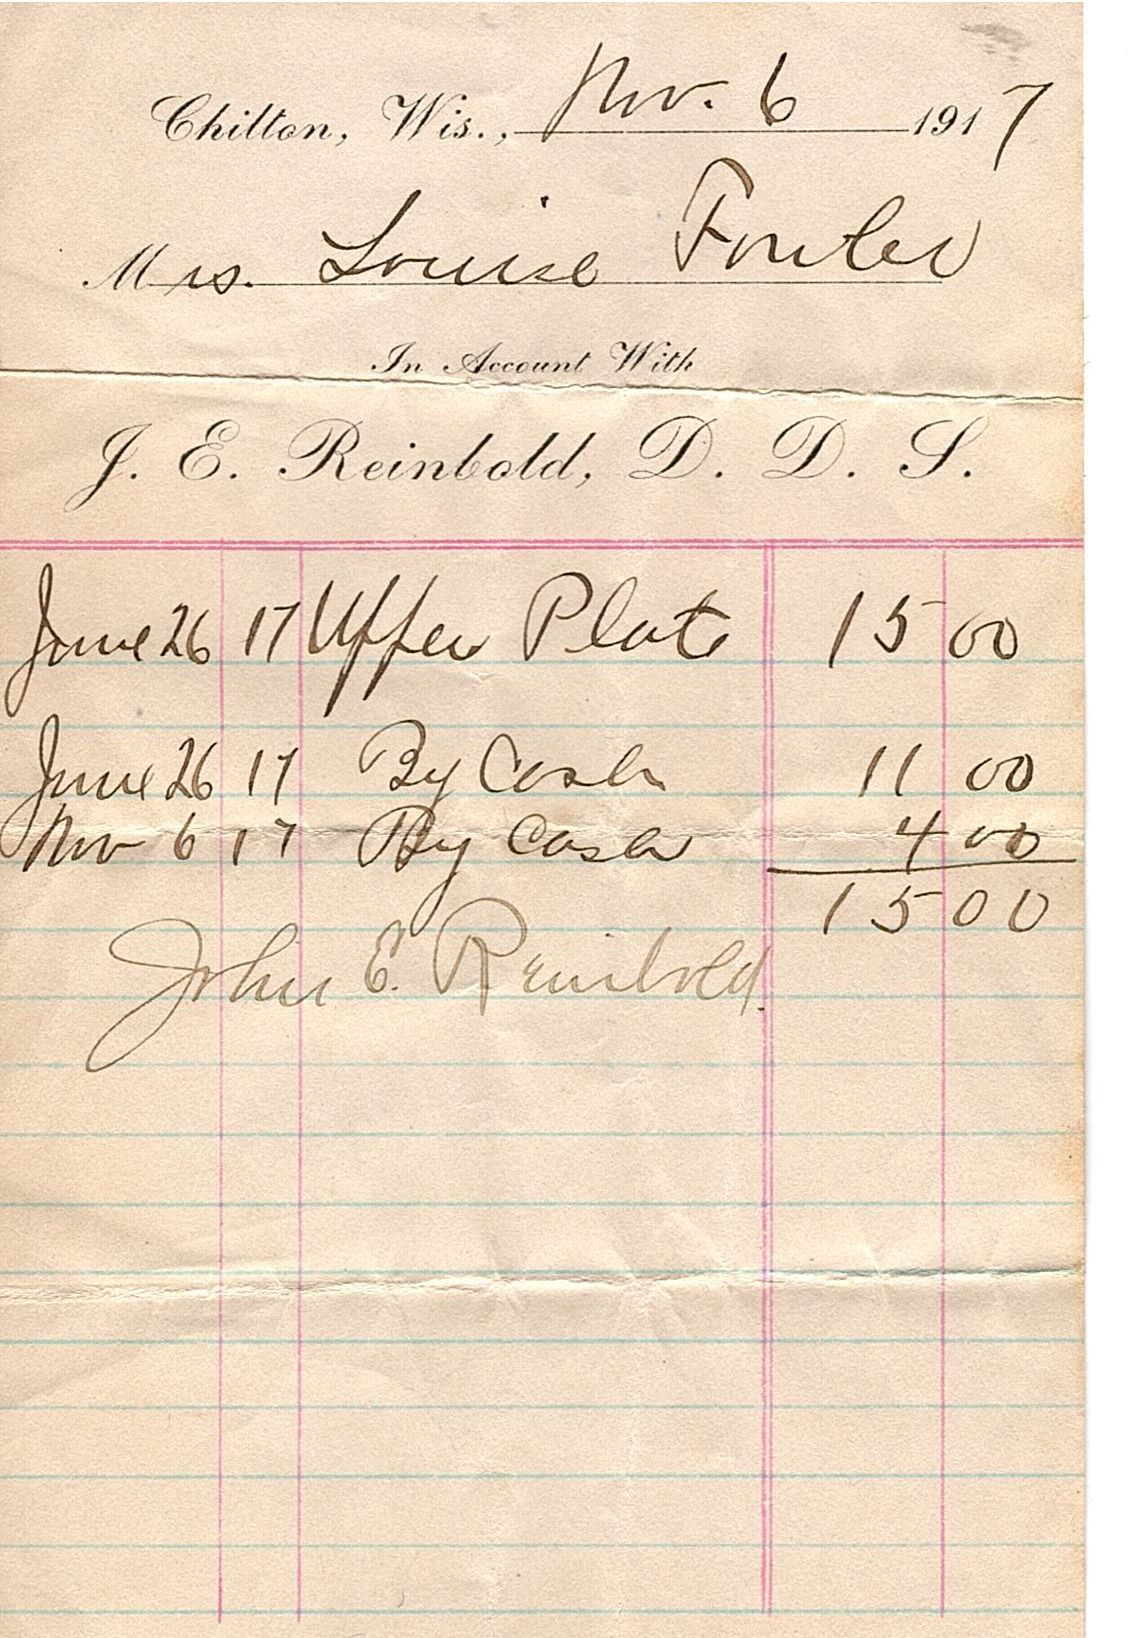 Chilton, Wis., Nov. 6 1917
Mrs. Louise Fowler
In Account With
J. E. Reinbold, D. D. S.
June 26 17 Upper Plate 15 00
June 26 17 By Cash 11 00
Nov 6 17 By Cash 4 00
15 00
John E. Reinbold.